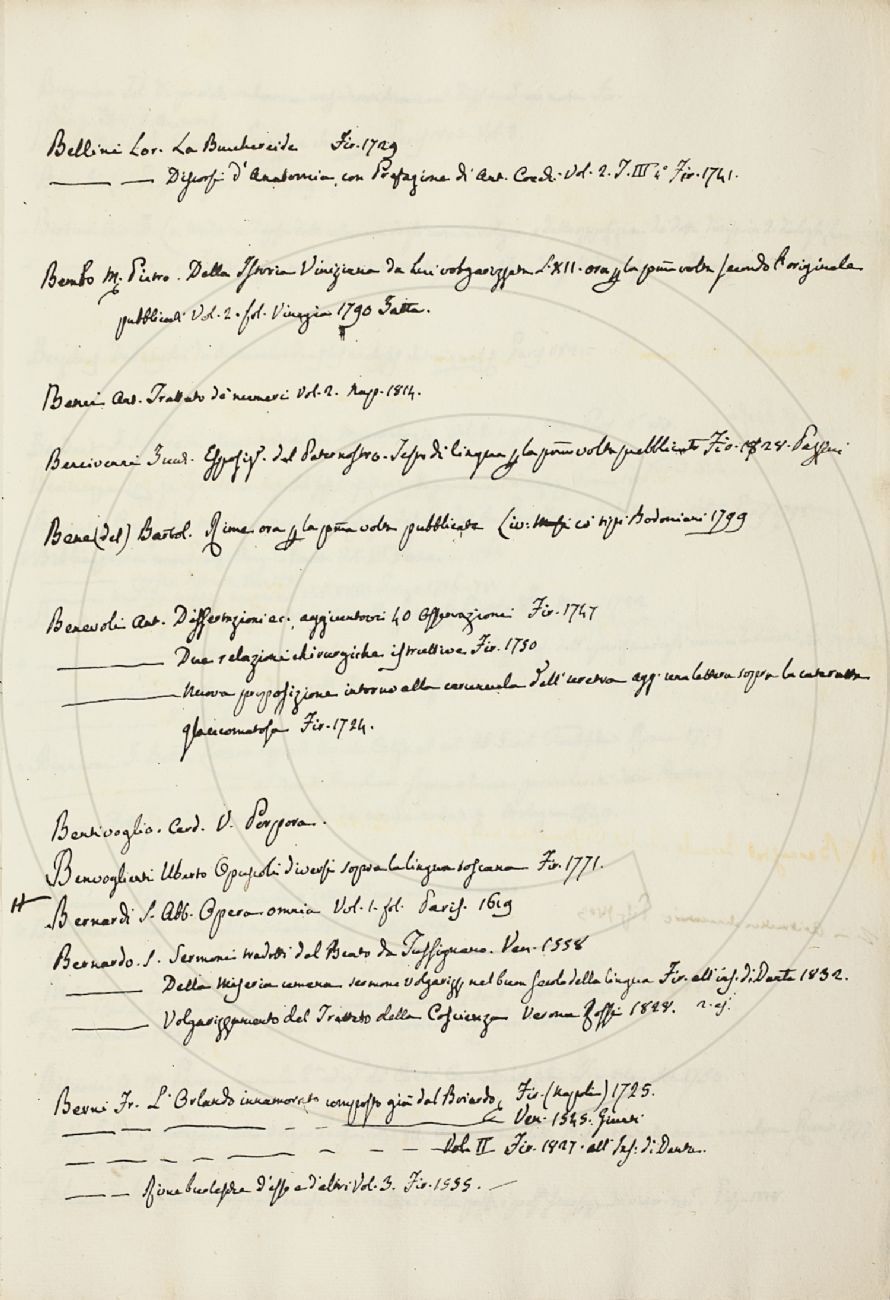 Bellini Lor. La Bucchereide Fir. 1729
—— — Discorsi d'Anatomia, con Prefazione di Ant. Cocchi. Vol. 2. T. III 4° Fir. 1741.
Bembo M. Pietro. Della Istoria Viniziana da lui volgarizzata L. XII. ora p la pma volta secondo l'originale
pubblicati Vol. 2. fol. Vinegia 1790 Zatta.
Benci Ant. Trattato de' numeri Vol. 2. Nap. 1814.
Bencivenni Zucc. Esposiz. del Paternostro. Testo di lingua p la pma volta pubblicato Fir. 1828.
Bene (del) Bartol. Rime ora p la pma volta pubblicate (Liv: co' tipi Bodoniani 1799
Benevoli Ant. Dissertazioni ec. aggiuntovi 40 Osservazioni Fir. 1747
—— Due relazioni chirurgiche istruttive Fir. 1750
—— Nuova proposizione intorno alla caruncula dell'uretra agg. una lettera sopra la cateratta
glaucomatosa Fir. 1724.
Bentivoglio. Card. V. Porpora.
Benvoglienti Uberto Opuscoli diversi sopra la lingua toscana Fir. 1771.
Bernardi S. Abb. Opera omnia Vol. 1. fol. Paris. 1619
Bernardo. S. Sermoni tradotti dal Beato da Tussignano. Ven. 1558
—— Della Miseria umana sermone volgarizz nel buon secolo della lingua Fir. all'ins. di Dante 1832.
—— Volgarizzamento del Trattato della Coscienza Verona Rossi 1828. 2. es.
Berni Fr. L'Orlando innamorato composto già dal Boiardo, Fir. (Napoli) 1725.
—— — —— - - Ven. 1545. Giunti
— — — — —— - - - Vol. II Fir. 1827. all'Ins. di Dante.
—— — Rime burlesche d'esso e d'altri Vol. 3. Fir. 1555. —